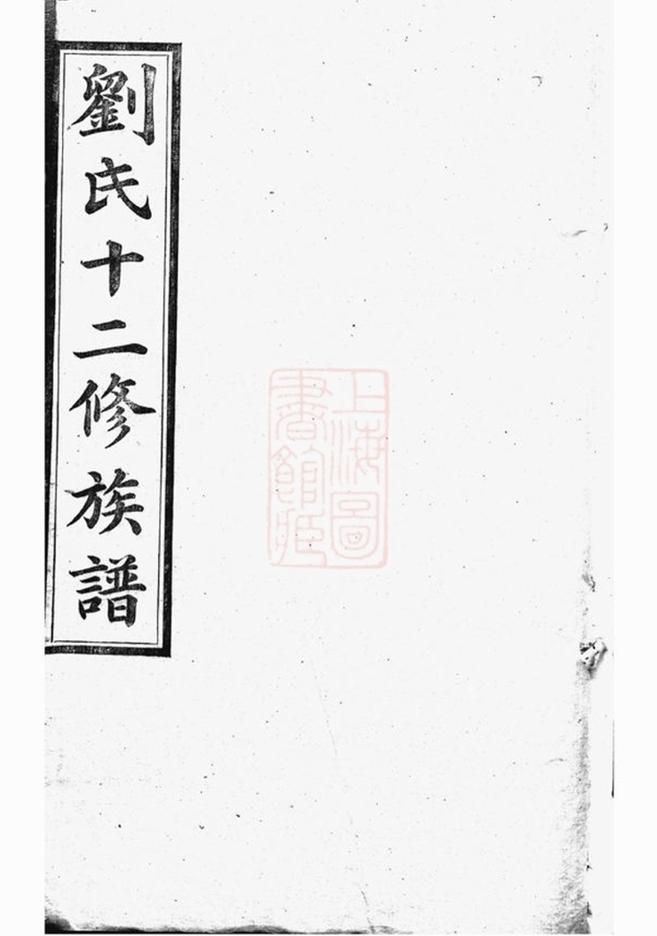 劉氏十二修族譜
上海圖
書館藏